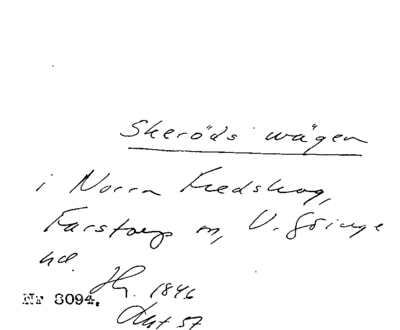 Skeröds wägen
i Norra Fredskog,
Farstorps sn, V. Göinge
hd.
Hy. 1846
Nr 3094.
Akt 57